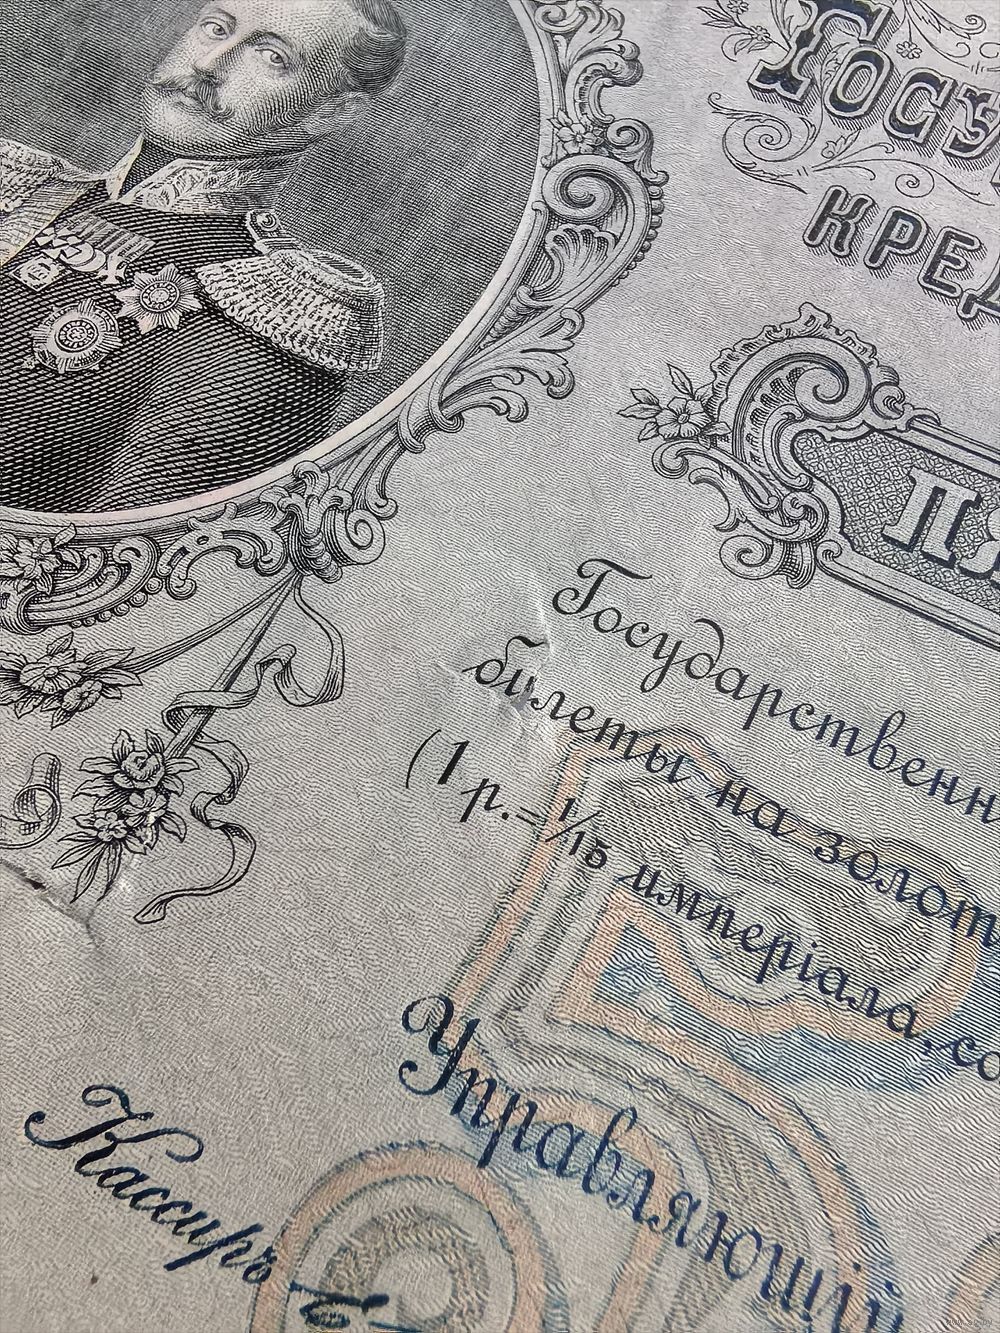 Госу
КРЕД
ПЯ
Государственн
билеты на золот
(1 р.=1/15 имперіала, со
Управляющій
Кассиръ